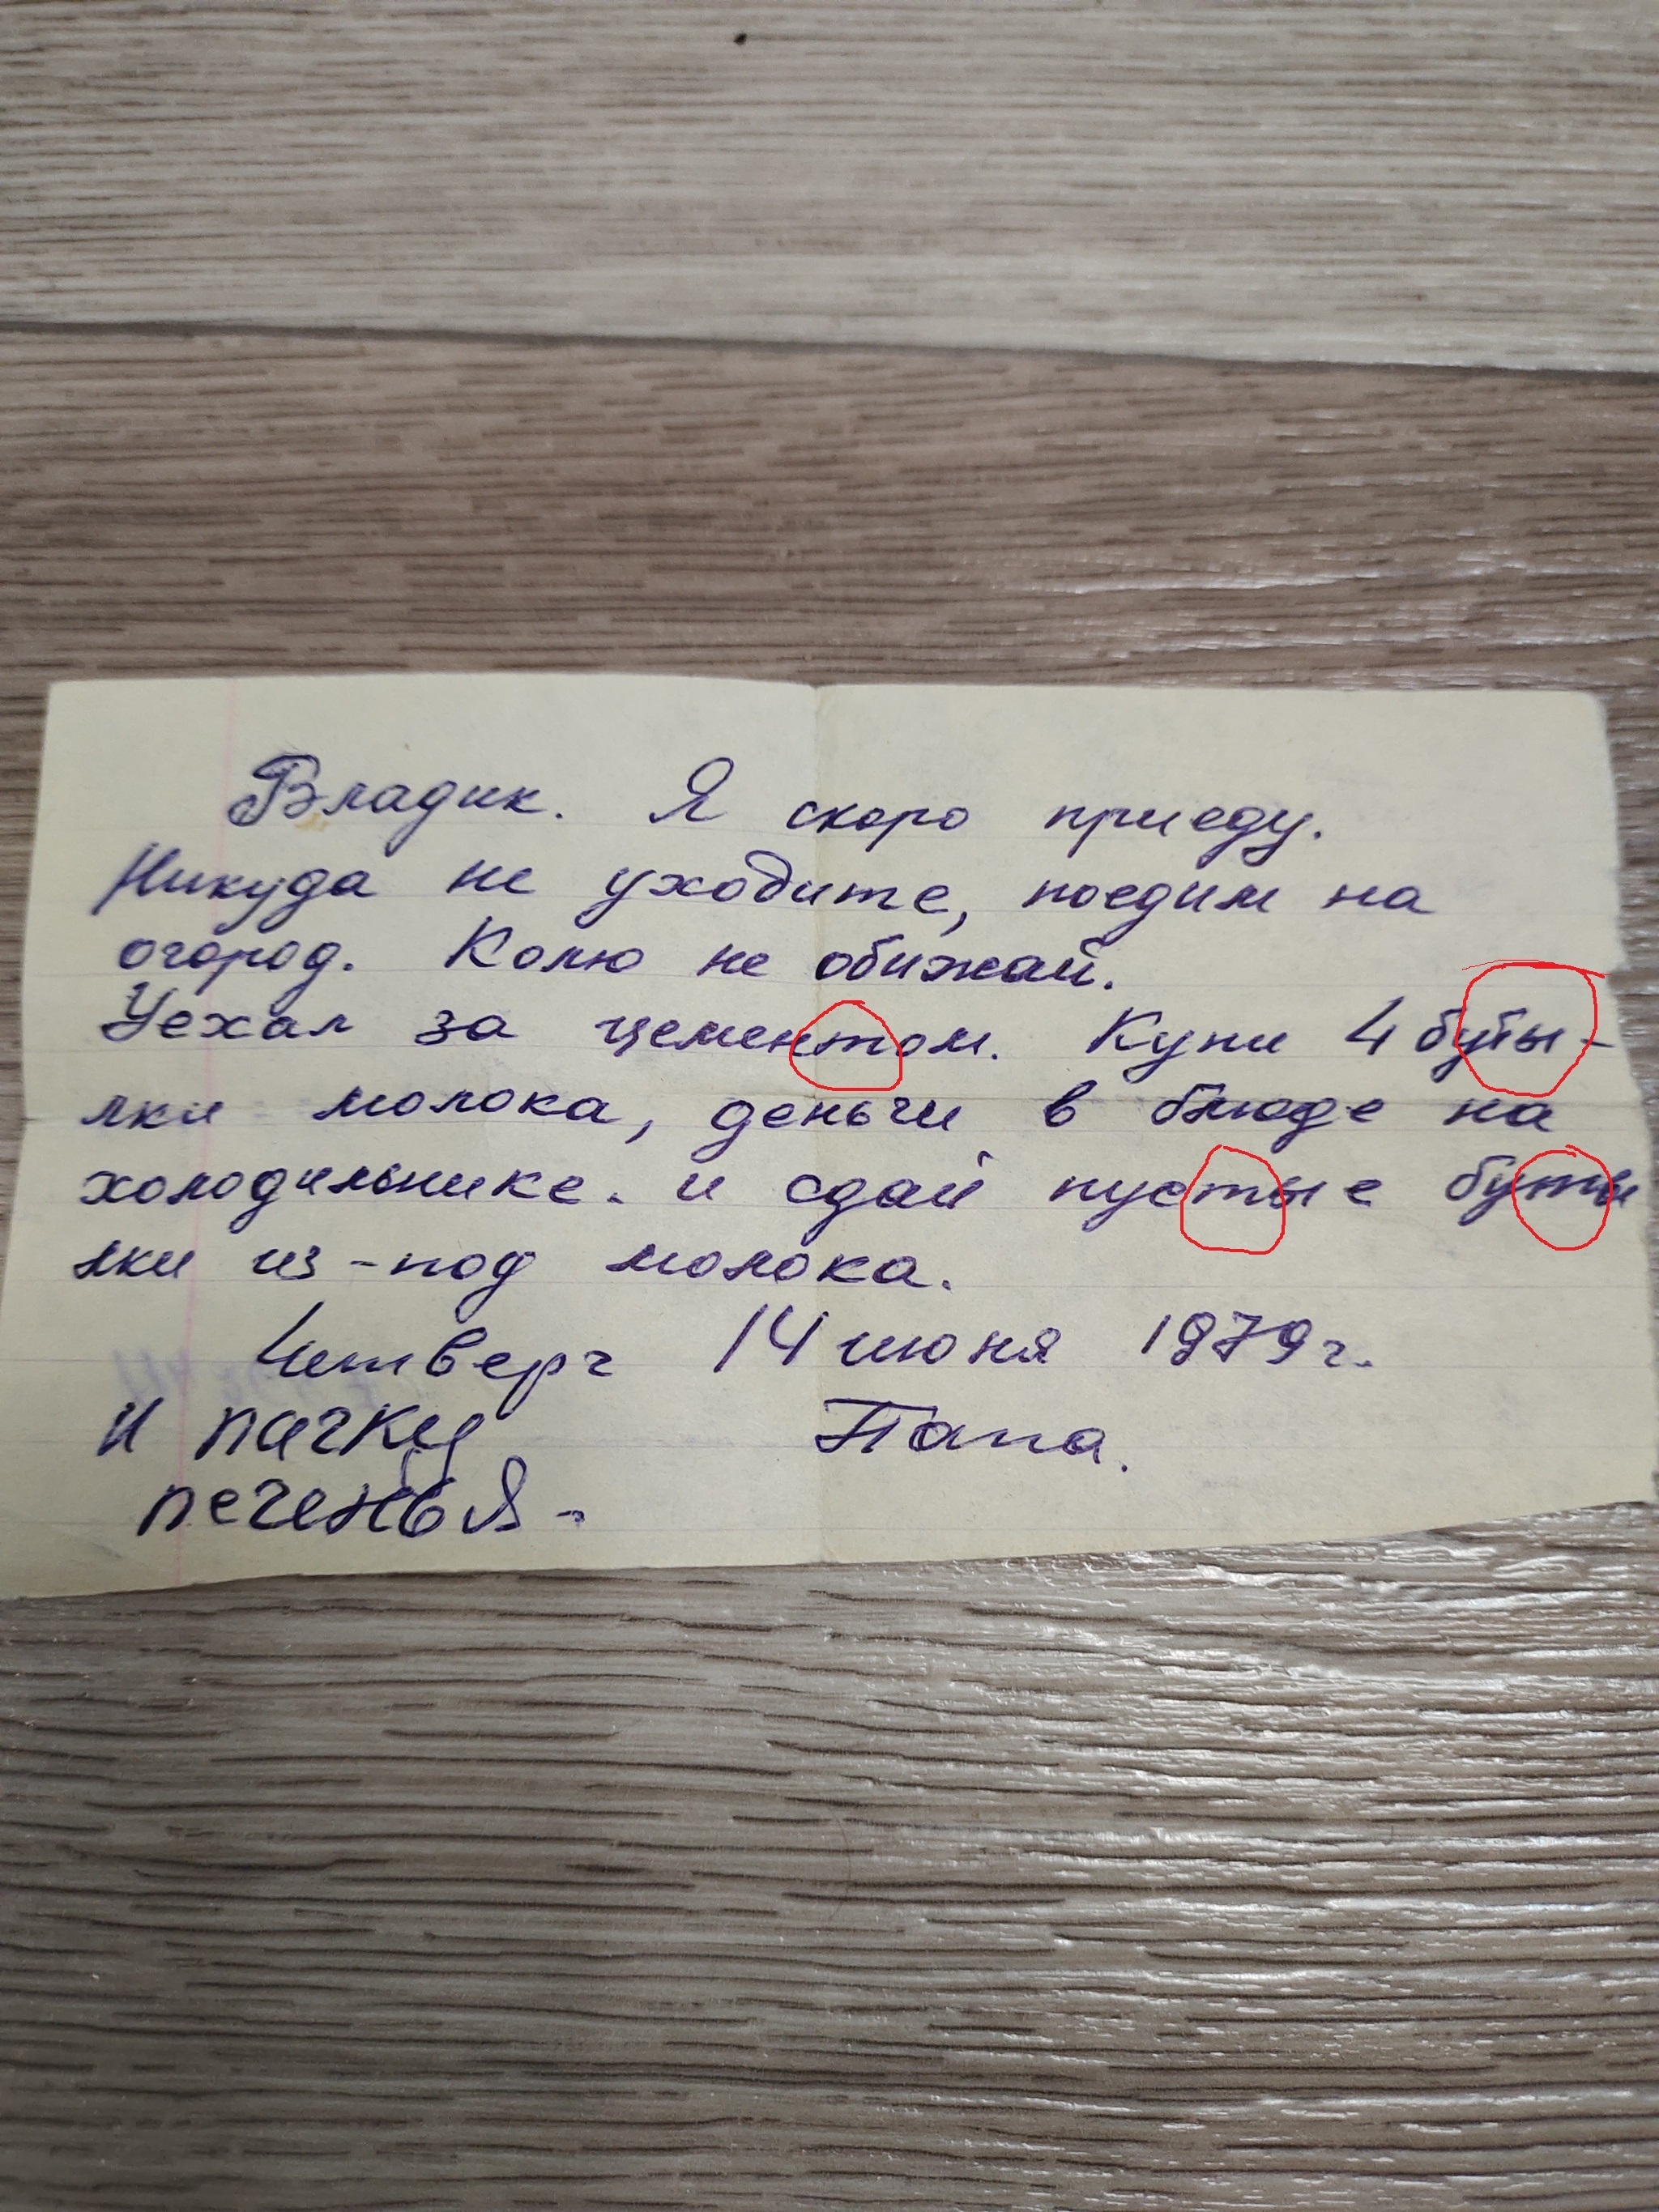 Владик. Я скоро приеду.
Никуда не уходите, поедим на
огород. Колю не обижай.
Уехал за цементом. Купи 4 буты-
лки молока, деньги в блюде на
холодильнике. и сдай пустые буты
лки из-под молока.
Четверг 14 июня 1979г.
И пачку Папа.
печенья.